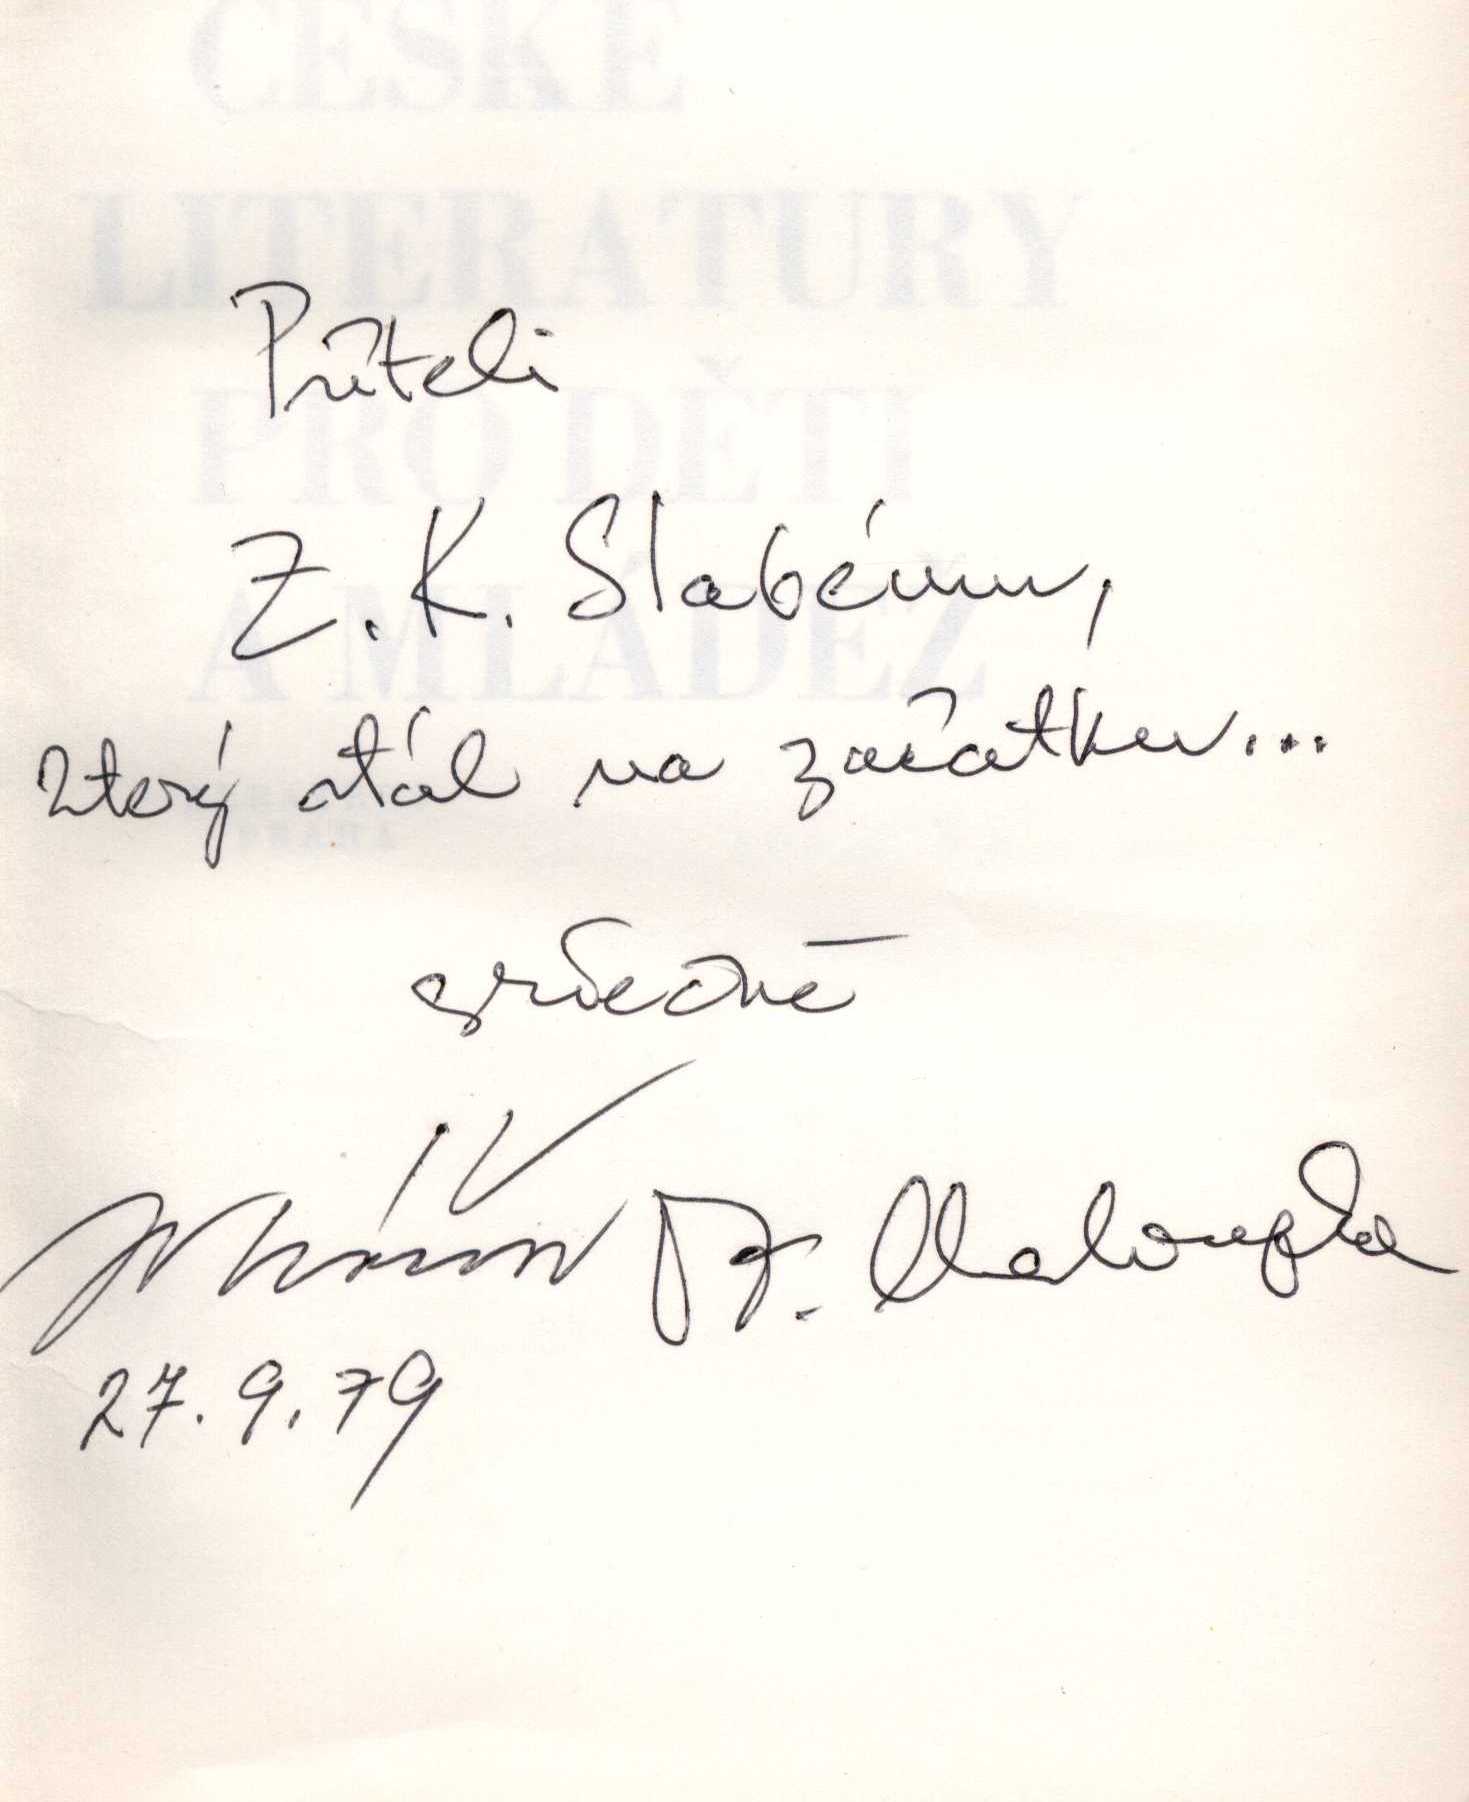 ČESKÉ
LITERATURY
Příteli
PRO DĚTI
Z. K. Slabému,
A MLÁDEŽ
který stál na začátku...
srdečně
O. Chaloupka
27. 9. 79